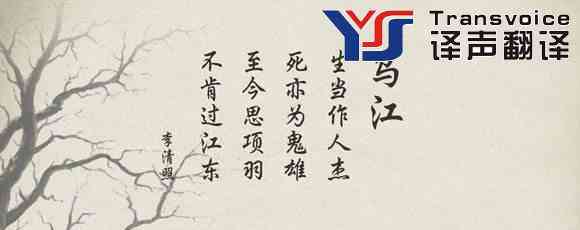 YS
Transvoice
译声翻译
乌江
生当作人杰
死亦为鬼雄
至今思项羽
不肯过江东
李清照